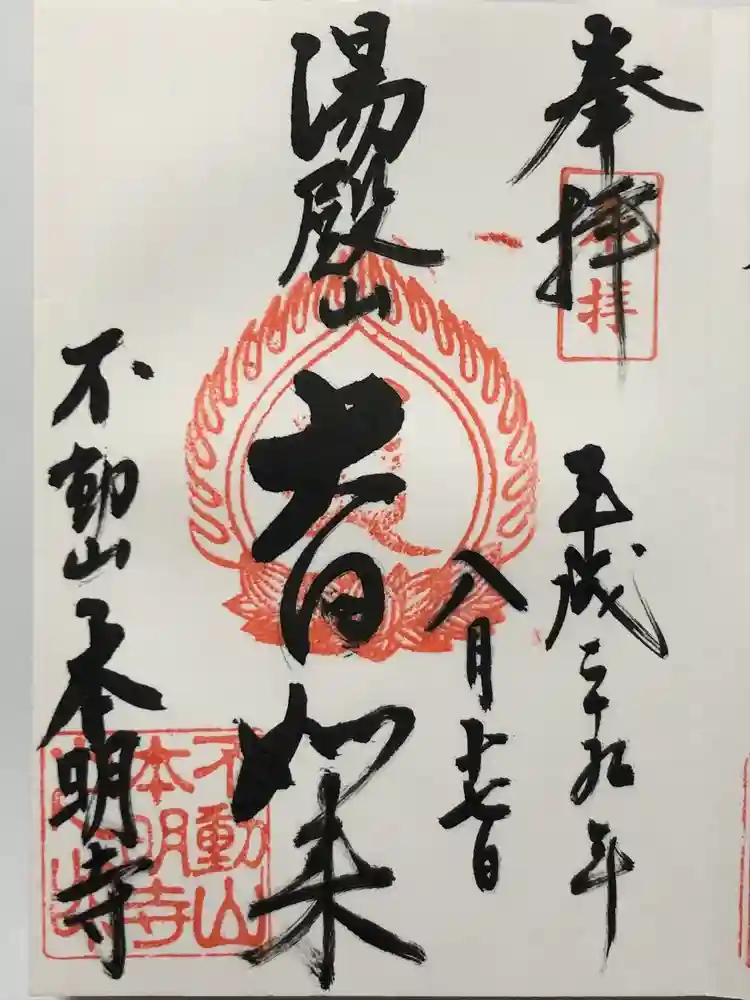 奉拝
奉拝
平成二十九年
八月十七日
湯殿山
大日如来
不動山 本明寺
不動山
本明寺